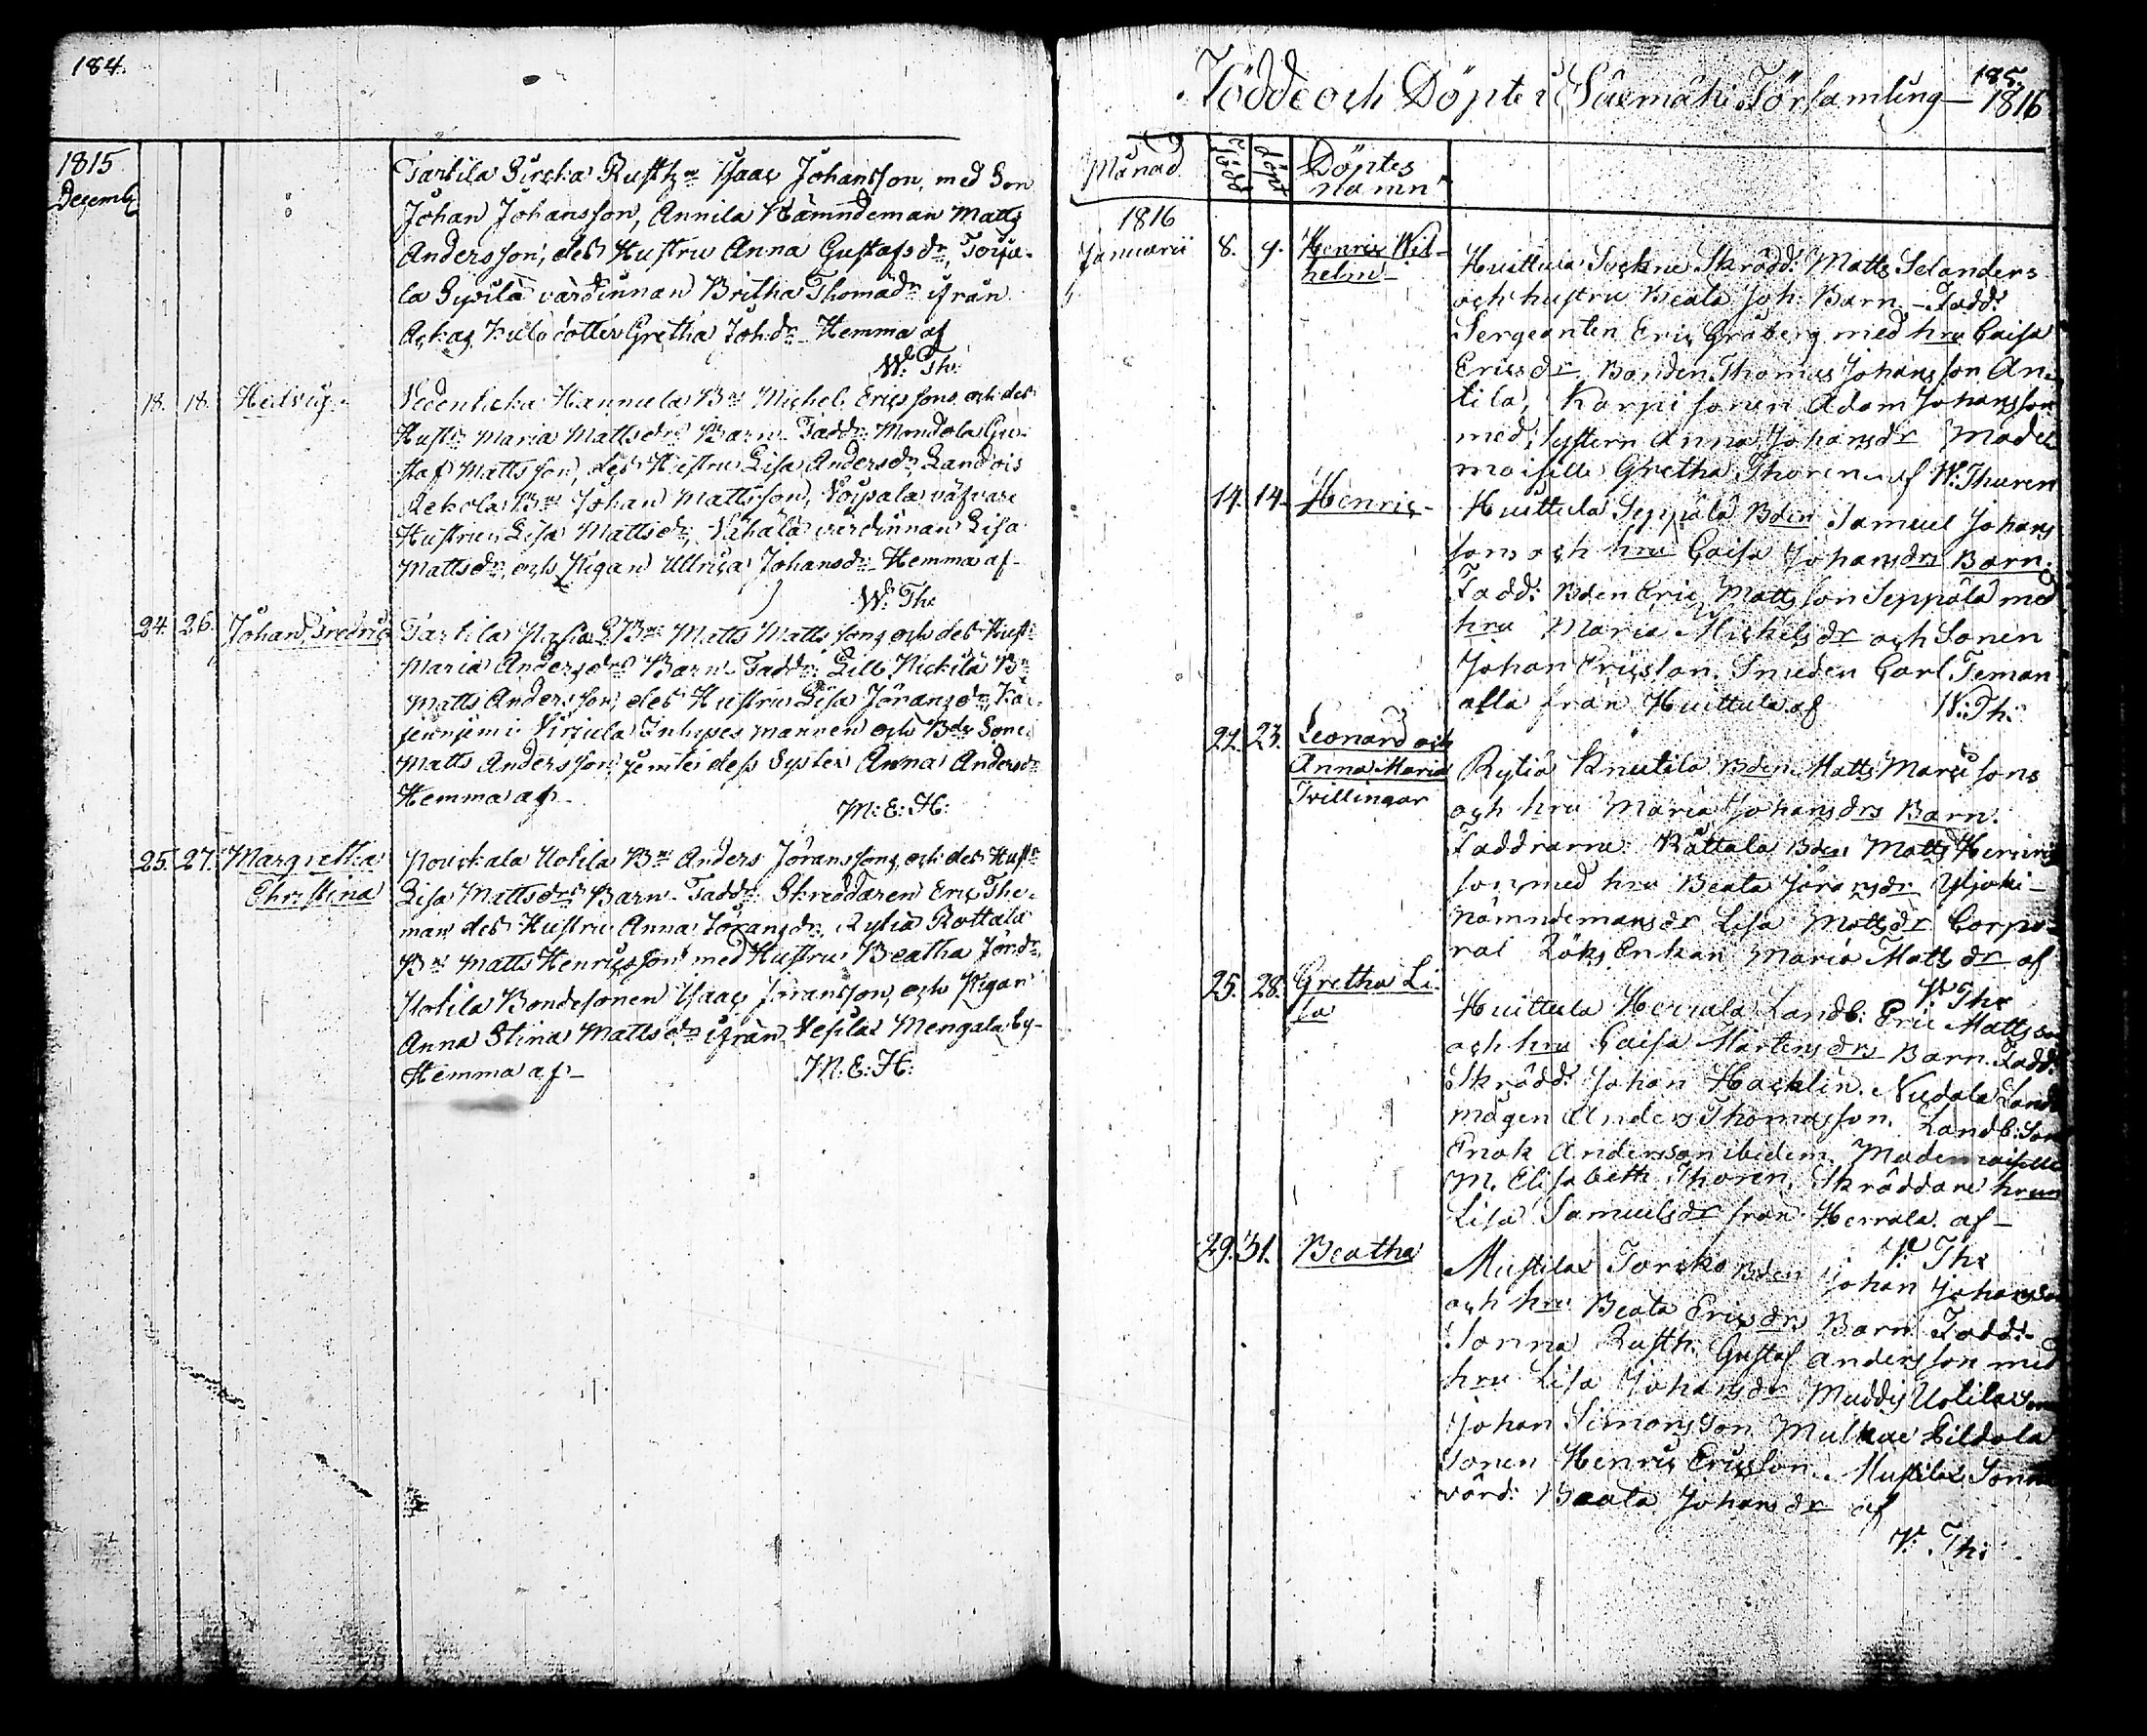 184.
1815
Decemb
Tarkila Pircka Rusth:n Isaac Johansson, med Son
Johan Johansson, Annila Nämndeman Matts
Andersson, des Hustru Anna Gustafsdr,
la värdinnan Britha Thomædr ifrån
dotter Gretha Johdr. Hemma af
W. Th:
18. 18. Hedvig. Hannula Michel Ericssons och des
Hustr Maria Mattsdrs Barn. Faddr: Mondola Gu-
staf Mattsson, des Hustru Lisa Andersdr,
Rekola Johan Mattsson,
Hustru Lisa Mattsdr, värdinnan Lisa
Mattsdr, och Pigan Ullrica Johansdr Hemma af-
W. Th:
24. 26. Johan Fredric Tarkila Matts Mattssons och des Hust
Maria Andersdrs Barn. Faddr:
Matts Andersson, des Hustru Lisa Jöransdr,
Inhyses mannen och Bde Sonen
Matts Andersson jemte dess Syster Anna Andersdr
Hemma af- M: E: H:
25. 27. Margretha Uotila Anders Jöranssons och des Hustr
Christina Lisa Mattsdrs Barn. Faddr: Skreddaren Eric The-
man des Hustru Anna Jöransdr, Rytiä Rottala
Matts Henricsson med Hustru Beatha Jördr,
Uotila Bondesonen Isaac Jöransson, och Pigan
Anna Stina Mattsdr ifrån Vesilax Mengala by-
Hemma af- M. E: H:
185.
Födde och Döpte i Församling — 1816
Månad Född döpt Döptes namn
1816
Januarii 8. 9. Henric Wil- Huittula Skrädd: Matts Selanders
helm och hustru Beata Joh: Barn - Fadd:
Sergeanten Eric Gråberg med hru Caisa
Ericsdr Bonden Thomas Johansson An-
tila, Karpi sonen Adam Johansson
med systern Anna Johansdr Made-
moiselle Gretha Thoren. af W. Thuren
14. 14. Henric Huittula Seppälä Bden Samuel Johans
sons och hru Caisa Johansdrs Barn.
Fadd: Bden Eric Mattsson Seppälä med
hru Maria Michelsdr och Sonen
Johan Ericsson. Smeden Carl Teman
alla från Huittula af W. Th:
22. 23. Leonard och
Anna Maria Rytiä Knutila Bden Matts sons
Tvillingar och hru Maria Johansdrs Barn.
Faddrarne: Rättala Bden Matts Henrics
son med hru Beata Jöransdr Ylijoki-
nämndemansdr Lisa Mattsdr Corpo-
ral Röks Enkan Maria Mattsdr af
V. Thr
25. 28. Gretha Li- Huittula Herrala Landb: Eric Mattsson
sa och hru Caisa Mårtensdrs Barn. Fadd:
Skrädd: Johan Hacklin. Nudola Landb
mågen Anders Thomasson. Landb: Son
Enok Andersson ibidem. Mademoiselle
M. Elisabeth Thoren, Skräddare hrun
Lisa Samuelsdr från Herrala. af-
V. Thr
29. 31. Beatha Mustila Torcko Bden Johan Johansson
och hru Beata Ericsdrs Barn Fadd:
Rusth: Gustaf Andersson med
hru Lisa Johansdr Muddis Uotila Son
Johan Simonsson Pildola
Sonen Henric Ericsson. Mustila
värd: Beata Johansdr af
V. Th: